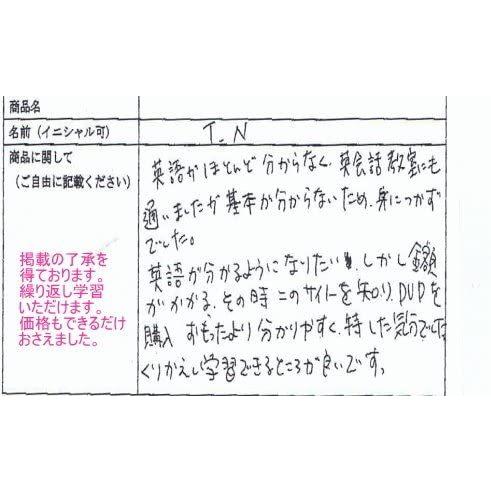 商品名
名前（イニシャル可）
T.N
商品に関して
（ご自由に記載ください）
英語がほとんど分からなく、英会話教室にも
通いましたが基本が分からないため、身につかず
でした。
英語が分かるようになりたい、しかし金額
がかかる、その時このサイトを知り、DVDを
購入 おもったより分かりやすく、特した気分でした
くりかえし学習できるところが良いです。
掲載の了承を
得ております。
繰り返し学習
いただけます。
価格もできるだけ
おさえました。